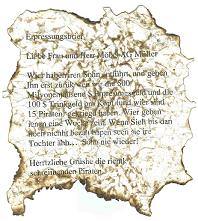 Erpressungsbrief
Liebe Frau und Herr Möbel AG Müller
Wier haben iren Sohn entführt, und geben
Ihm erst zurük wen wir die 500
Milionentausend $ Erpressergeld und die
100 $ Trinkgeld pro Kopf (und wier sind
15 Piraten) gekriegt haben. Wier geben
ihnen eine Woche zeit. Wenn Sieh bis dan
noch nichht bezalt haben seen sie ire
Tochter ähh... Sohn nie wieder!
Hertzliche Grüshe die rientk
schreibenden Piraten